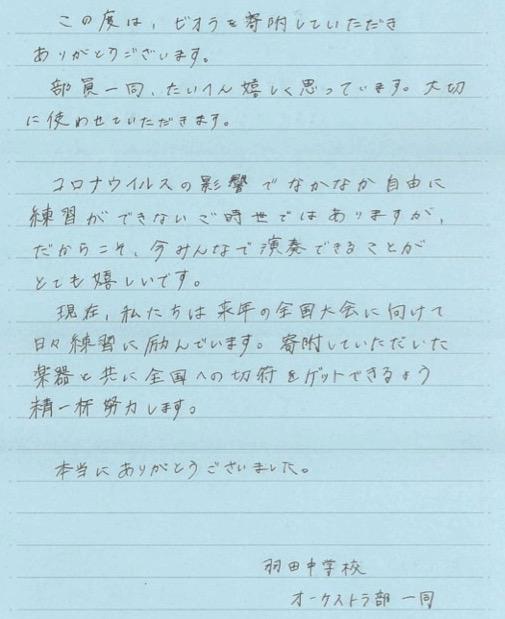 この度は、ビオラを寄附していただき
ありがとうございます。
部員一同、たいへん嬉しく思っています。大切
に使わせていただきます。
コロナウイルスの影響でなかなか自由に
練習ができないご時世ではありますが、
だからこそ、今みんなで演奏できることが
とても嬉しいです。
現在、私たちは来年の全国大会に向けて
日々練習に励んでいます。寄附していただいた
楽器と共に全国への切符をゲットできるよう
精一杯努力します。
本当にありがとうございました。
羽田中学校
オーケストラ部 一同